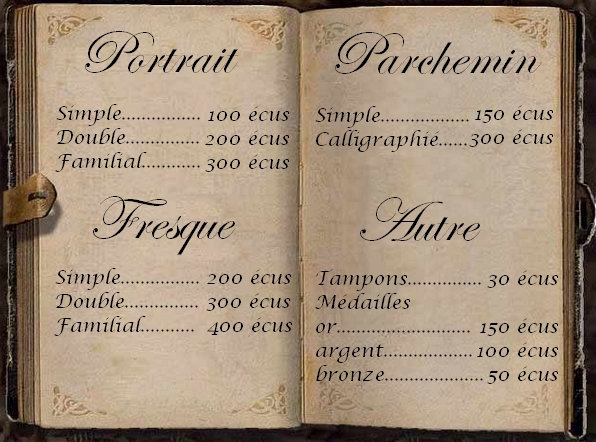 Portrait
Simple................ 100 écus
Double............... 200 écus
Familial........... 300 écus
Fresque
Simple............... 200 écus
Double.............. 300 écus
Familial.......... 400 écus
Parchemin
Simple.................. 150 écus
Calligraphié......300 écus
Autre
Tampons............... 30 écus
Médailles
or........................... 150 écus
argent..................100 écus
bronze.................... 50 écus